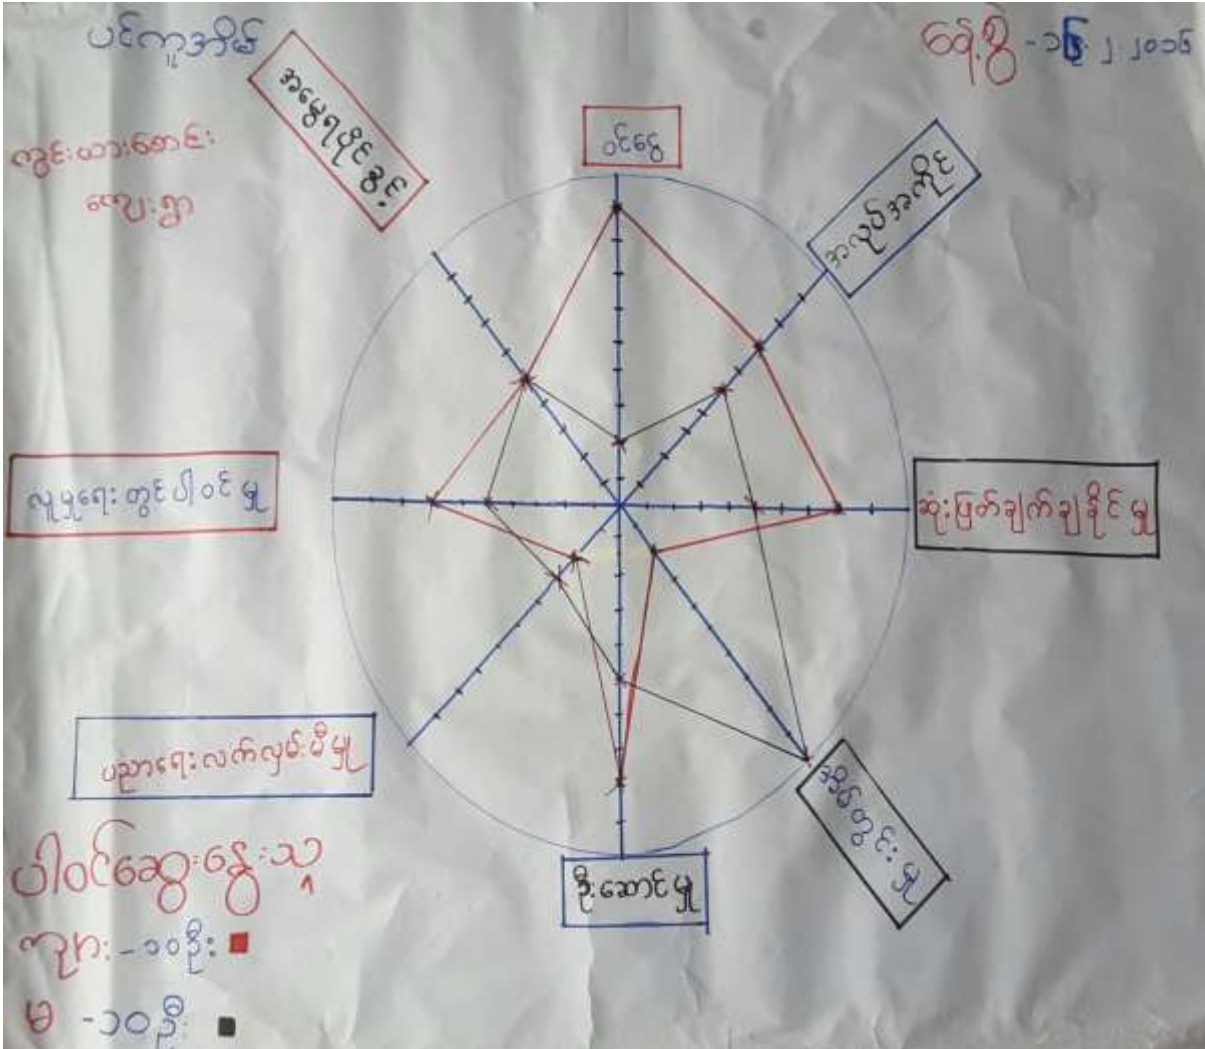 ပင်ကူအိမ်
နေ့စွဲ - ၁၆.၂.၂၀၁၆
ကျွင်းထားစောင်း
ကျေးရွာ
အမွေရပိုင်ခွင့်
ဝင်ငွေ
အလုပ်အကိုင်
လူမှုရေးတွင်ပါဝင်မှု
ဆုံးဖြတ်ချက်ချနိုင်မှု
ပညာရေးလက်လှမ်းမီမှု
အိမ်တွင်းမှု
ဦးဆောင်မှု
ပါဝင်ဆွေးနွေးသူ
ကျား - ၁၀ဦး
မ - ၁၀ဦး